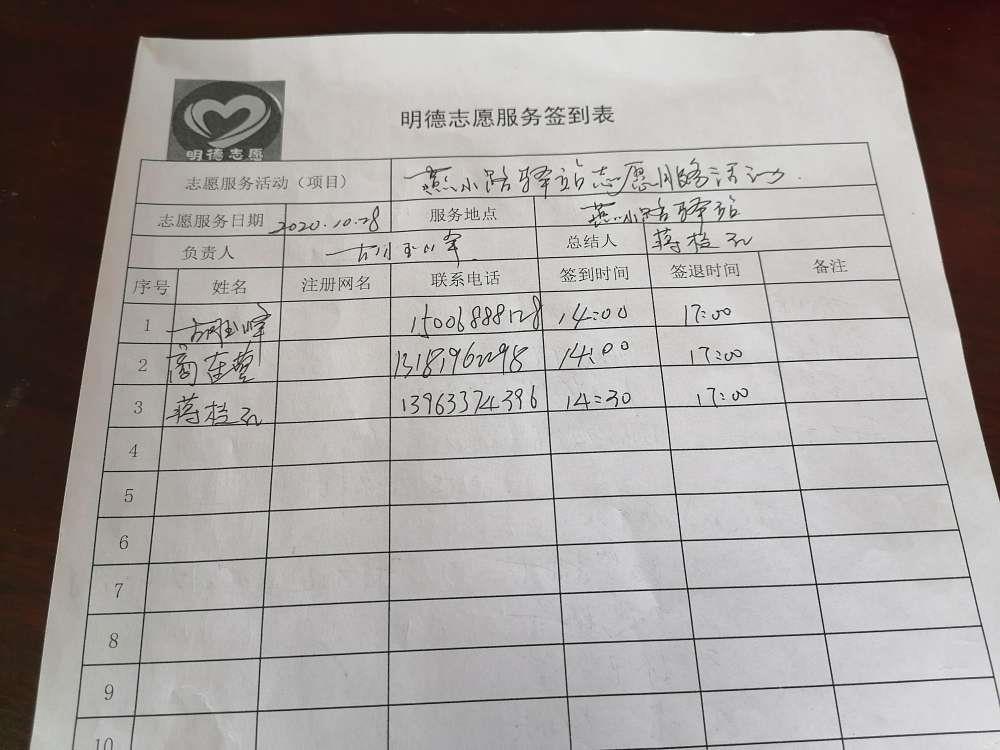 明德志愿
明德志愿服务签到表
志愿服务活动（项目） 燕小路驿站志愿服务活动.
志愿服务日期 2020.10.28 服务地点 燕小路驿站
负责人 胡玉峰 总结人 蒋桂
序号 姓名 注册网名 联系电话 签到时间 签退时间 备注
1 胡玉峰 15006888128 14:00 17:00
2 14:00 17:00
3 蒋桂 13963374396 14:30 17:00
4
5
6
7
8
9
10